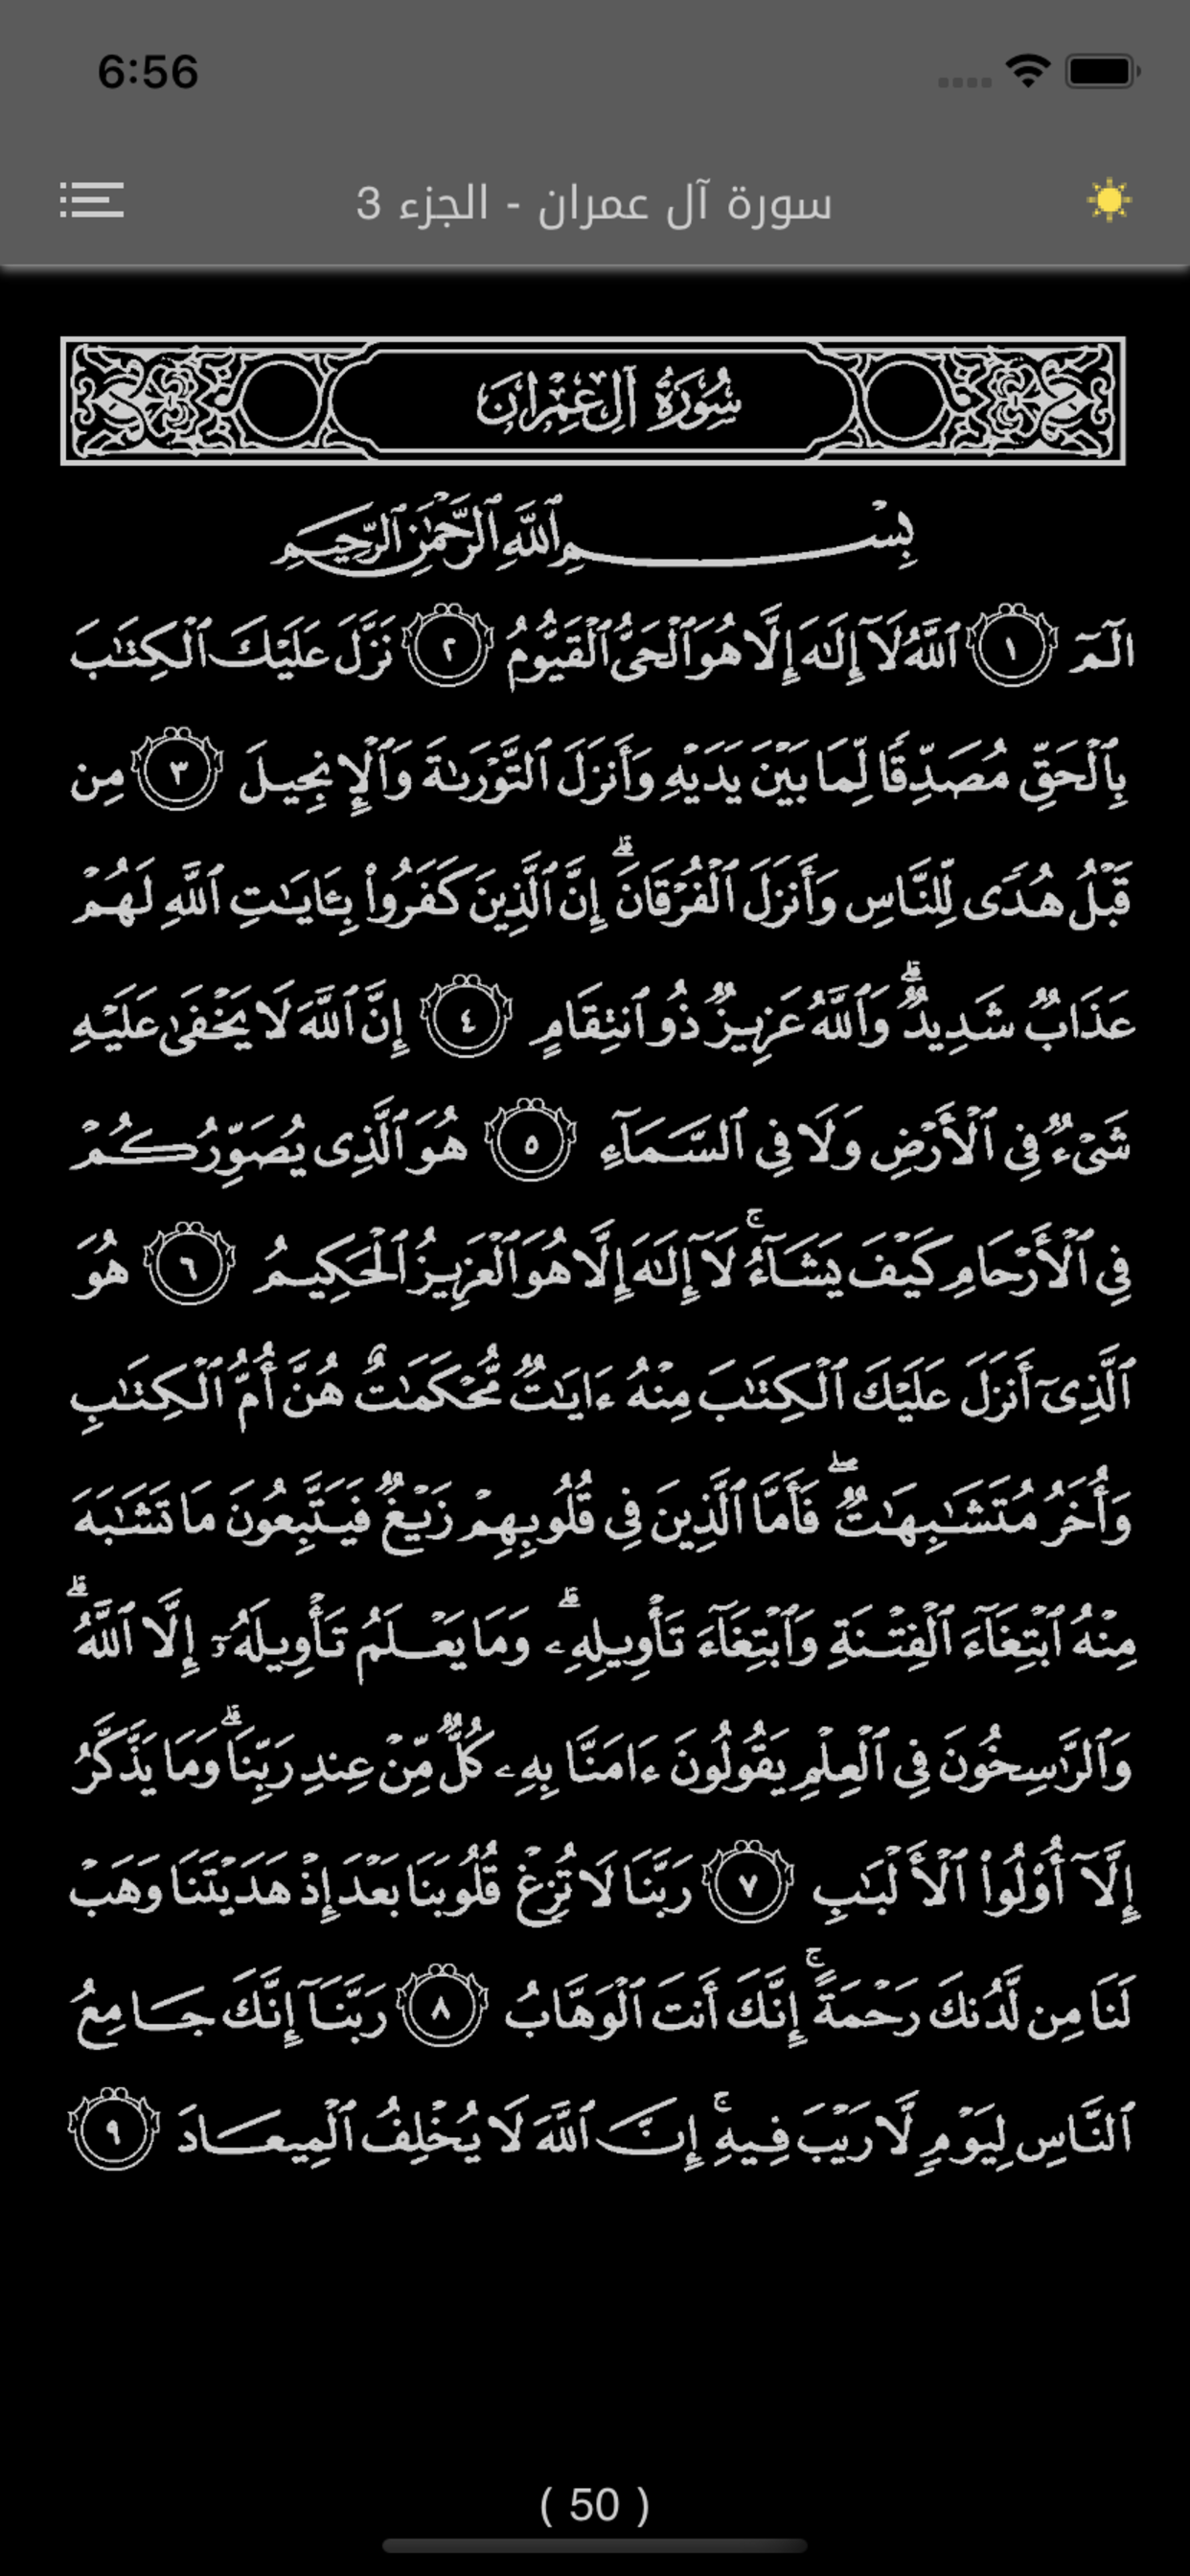 6:56
سورة آل عمران - الجزء 3
سُورَةُ آلِ عِمْرَانَ
بِسْمِ ٱللَّهِ ٱلرَّحْمَٰنِ ٱلرَّحِيمِ
الٓمٓ ١ ٱللَّهُ لَآ إِلَٰهَ إِلَّا هُوَ ٱلْحَىُّ ٱلْقَيُّومُ ٢ نَزَّلَ عَلَيْكَ ٱلْكِتَٰبَ
بِٱلْحَقِّ مُصَدِّقًا لِّمَا بَيْنَ يَدَيْهِ وَأَنزَلَ ٱلتَّوْرَىٰةَ وَٱلْإِنجِيلَ ٣ مِن
قَبْلُ هُدًى لِّلنَّاسِ وَأَنزَلَ ٱلْفُرْقَانَ ۗ إِنَّ ٱلَّذِينَ كَفَرُوا۟ بِـَٔايَٰتِ ٱللَّهِ لَهُمْ
عَذَابٌ شَدِيدٌ ۗ وَٱللَّهُ عَزِيزٌ ذُو ٱنتِقَامٍ ٤ إِنَّ ٱللَّهَ لَا يَخْفَىٰ عَلَيْهِ
شَىْءٌ فِى ٱلْأَرْضِ وَلَا فِى ٱلسَّمَآءِ ٥ هُوَ ٱلَّذِى يُصَوِّرُكُمْ
فِى ٱلْأَرْحَامِ كَيْفَ يَشَآءُ ۚ لَآ إِلَٰهَ إِلَّا هُوَ ٱلْعَزِيزُ ٱلْحَكِيمُ ٦ هُوَ
ٱلَّذِىٓ أَنزَلَ عَلَيْكَ ٱلْكِتَٰبَ مِنْهُ ءَايَٰتٌ مُّحْكَمَٰتٌ هُنَّ أُمُّ ٱلْكِتَٰبِ
وَأُخَرُ مُتَشَٰبِهَٰتٌ ۖ فَأَمَّا ٱلَّذِينَ فِى قُلُوبِهِمْ زَيْغٌ فَيَتَّبِعُونَ مَا تَشَٰبَهَ
مِنْهُ ٱبْتِغَآءَ ٱلْفِتْنَةِ وَٱبْتِغَآءَ تَأْوِيلِهِۦ ۗ وَمَا يَعْلَمُ تَأْوِيلَهُۥٓ إِلَّا ٱللَّهُ ۗ
وَٱلرَّٰسِخُونَ فِى ٱلْعِلْمِ يَقُولُونَ ءَامَنَّا بِهِۦ كُلٌّ مِّنْ عِندِ رَبِّنَا ۗ وَمَا يَذَّكَّرُ
إِلَّآ أُو۟لُوا۟ ٱلْأَلْبَٰبِ ٧ رَبَّنَا لَا تُزِغْ قُلُوبَنَا بَعْدَ إِذْ هَدَيْتَنَا وَهَبْ
لَنَا مِن لَّدُنكَ رَحْمَةً ۚ إِنَّكَ أَنتَ ٱلْوَهَّابُ ٨ رَبَّنَآ إِنَّكَ جَامِعُ
ٱلنَّاسِ لِيَوْمٍ لَّا رَيْبَ فِيهِ ۚ إِنَّ ٱللَّهَ لَا يُخْلِفُ ٱلْمِيعَادَ ٩
( 50 )